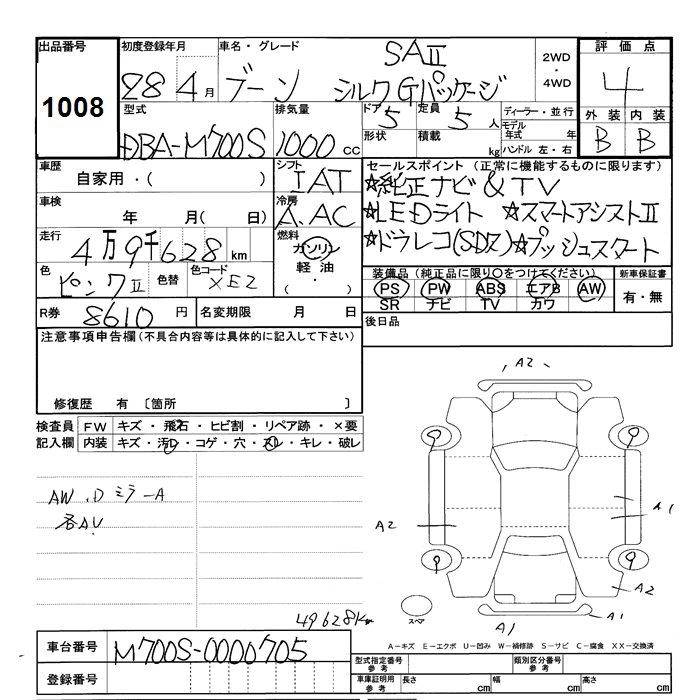 出品番号
1008
初度登録年月
28 4月
車名・グレード
ブーン シルクGパッケージ SAⅡ
2WD
・
4WD
評価点
4
外装 内装
B B
型式
DBA-M700S
排気量
1000cc
ドア 5
定員 5人
形状
積載 kg
ディーラー・並行
モデル年式 年
ハンドル 左・右
車歴
自家用・( )
シフト
IAT
車検
年 月( 日)
冷房
A.AC
走行
4万9千628km
燃料
ガソリン
軽油
( ・ )
色
ピンクⅡ
色替
色コード
XE2
R券 8610 円
名変期限 月 日
セールスポイント (正常に機能するものに限ります)
☆純正ナビ&TV
☆LEDライト ☆スマートアシストⅡ
☆ドラレコ(SDズ)☆プッシュスタート
装備品 (純正品に限り○をつけてください)
PS PW ABS エアB AW
SR ナビ TV カワ
新車保証書
有・無
後日品
注意事項申告欄(不具合内容等は具体的に記入して下さい)
修復歴 有 〔箇所 〕
検査員記入欄
FW キズ・飛石・ヒビ割・リペア跡・×要
内装 キズ・汚れ・コゲ・穴・スレ・キレ・破レ
AW.Dミラ-A
各AU
49628Km
A2
9 9
A2
A1
9 9
A2
A1
A1
スペア
A-キズ E-エクボ U-凹み W-補修跡 S-サビ C-腐食 XX-交換済
車台番号 M700S-0000705
登録番号
型式指定番号 参考
類別区分番号 参考
車庫証明用 参考
長さ cm 幅 cm 高さ cm